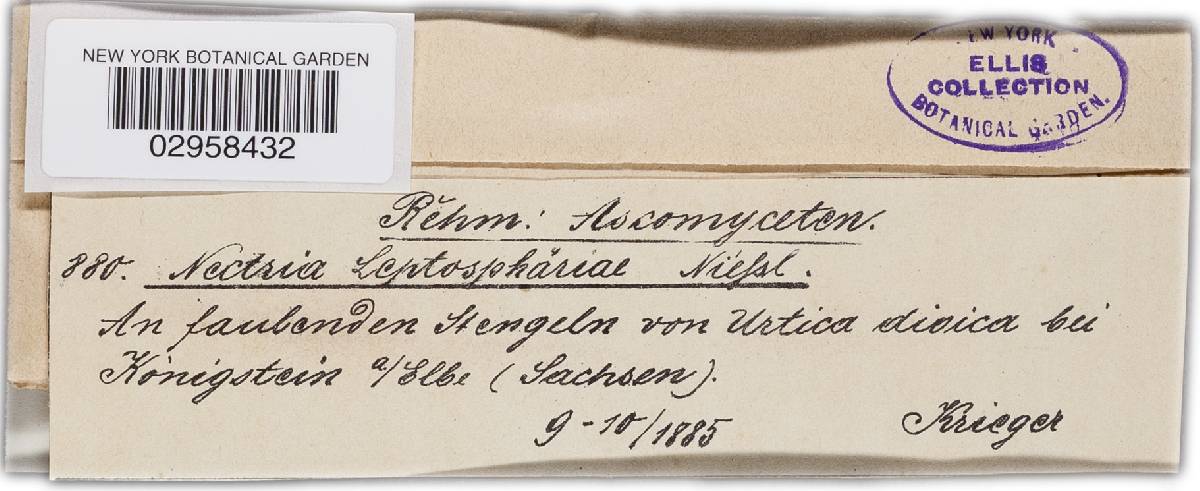 NEW YORK BOTANICAL GARDEN
02958432
NEW YORK
ELLIS
COLLECTION
BOTANICAL GARDEN.
Rehm: Ascomyceten.
880. Nectria Leptosphäriae Nießl.
An faulenden Stengeln von Urtica dioica bei
Königstein a/Elbe (Sachsen).
9-10/1885 Krieger